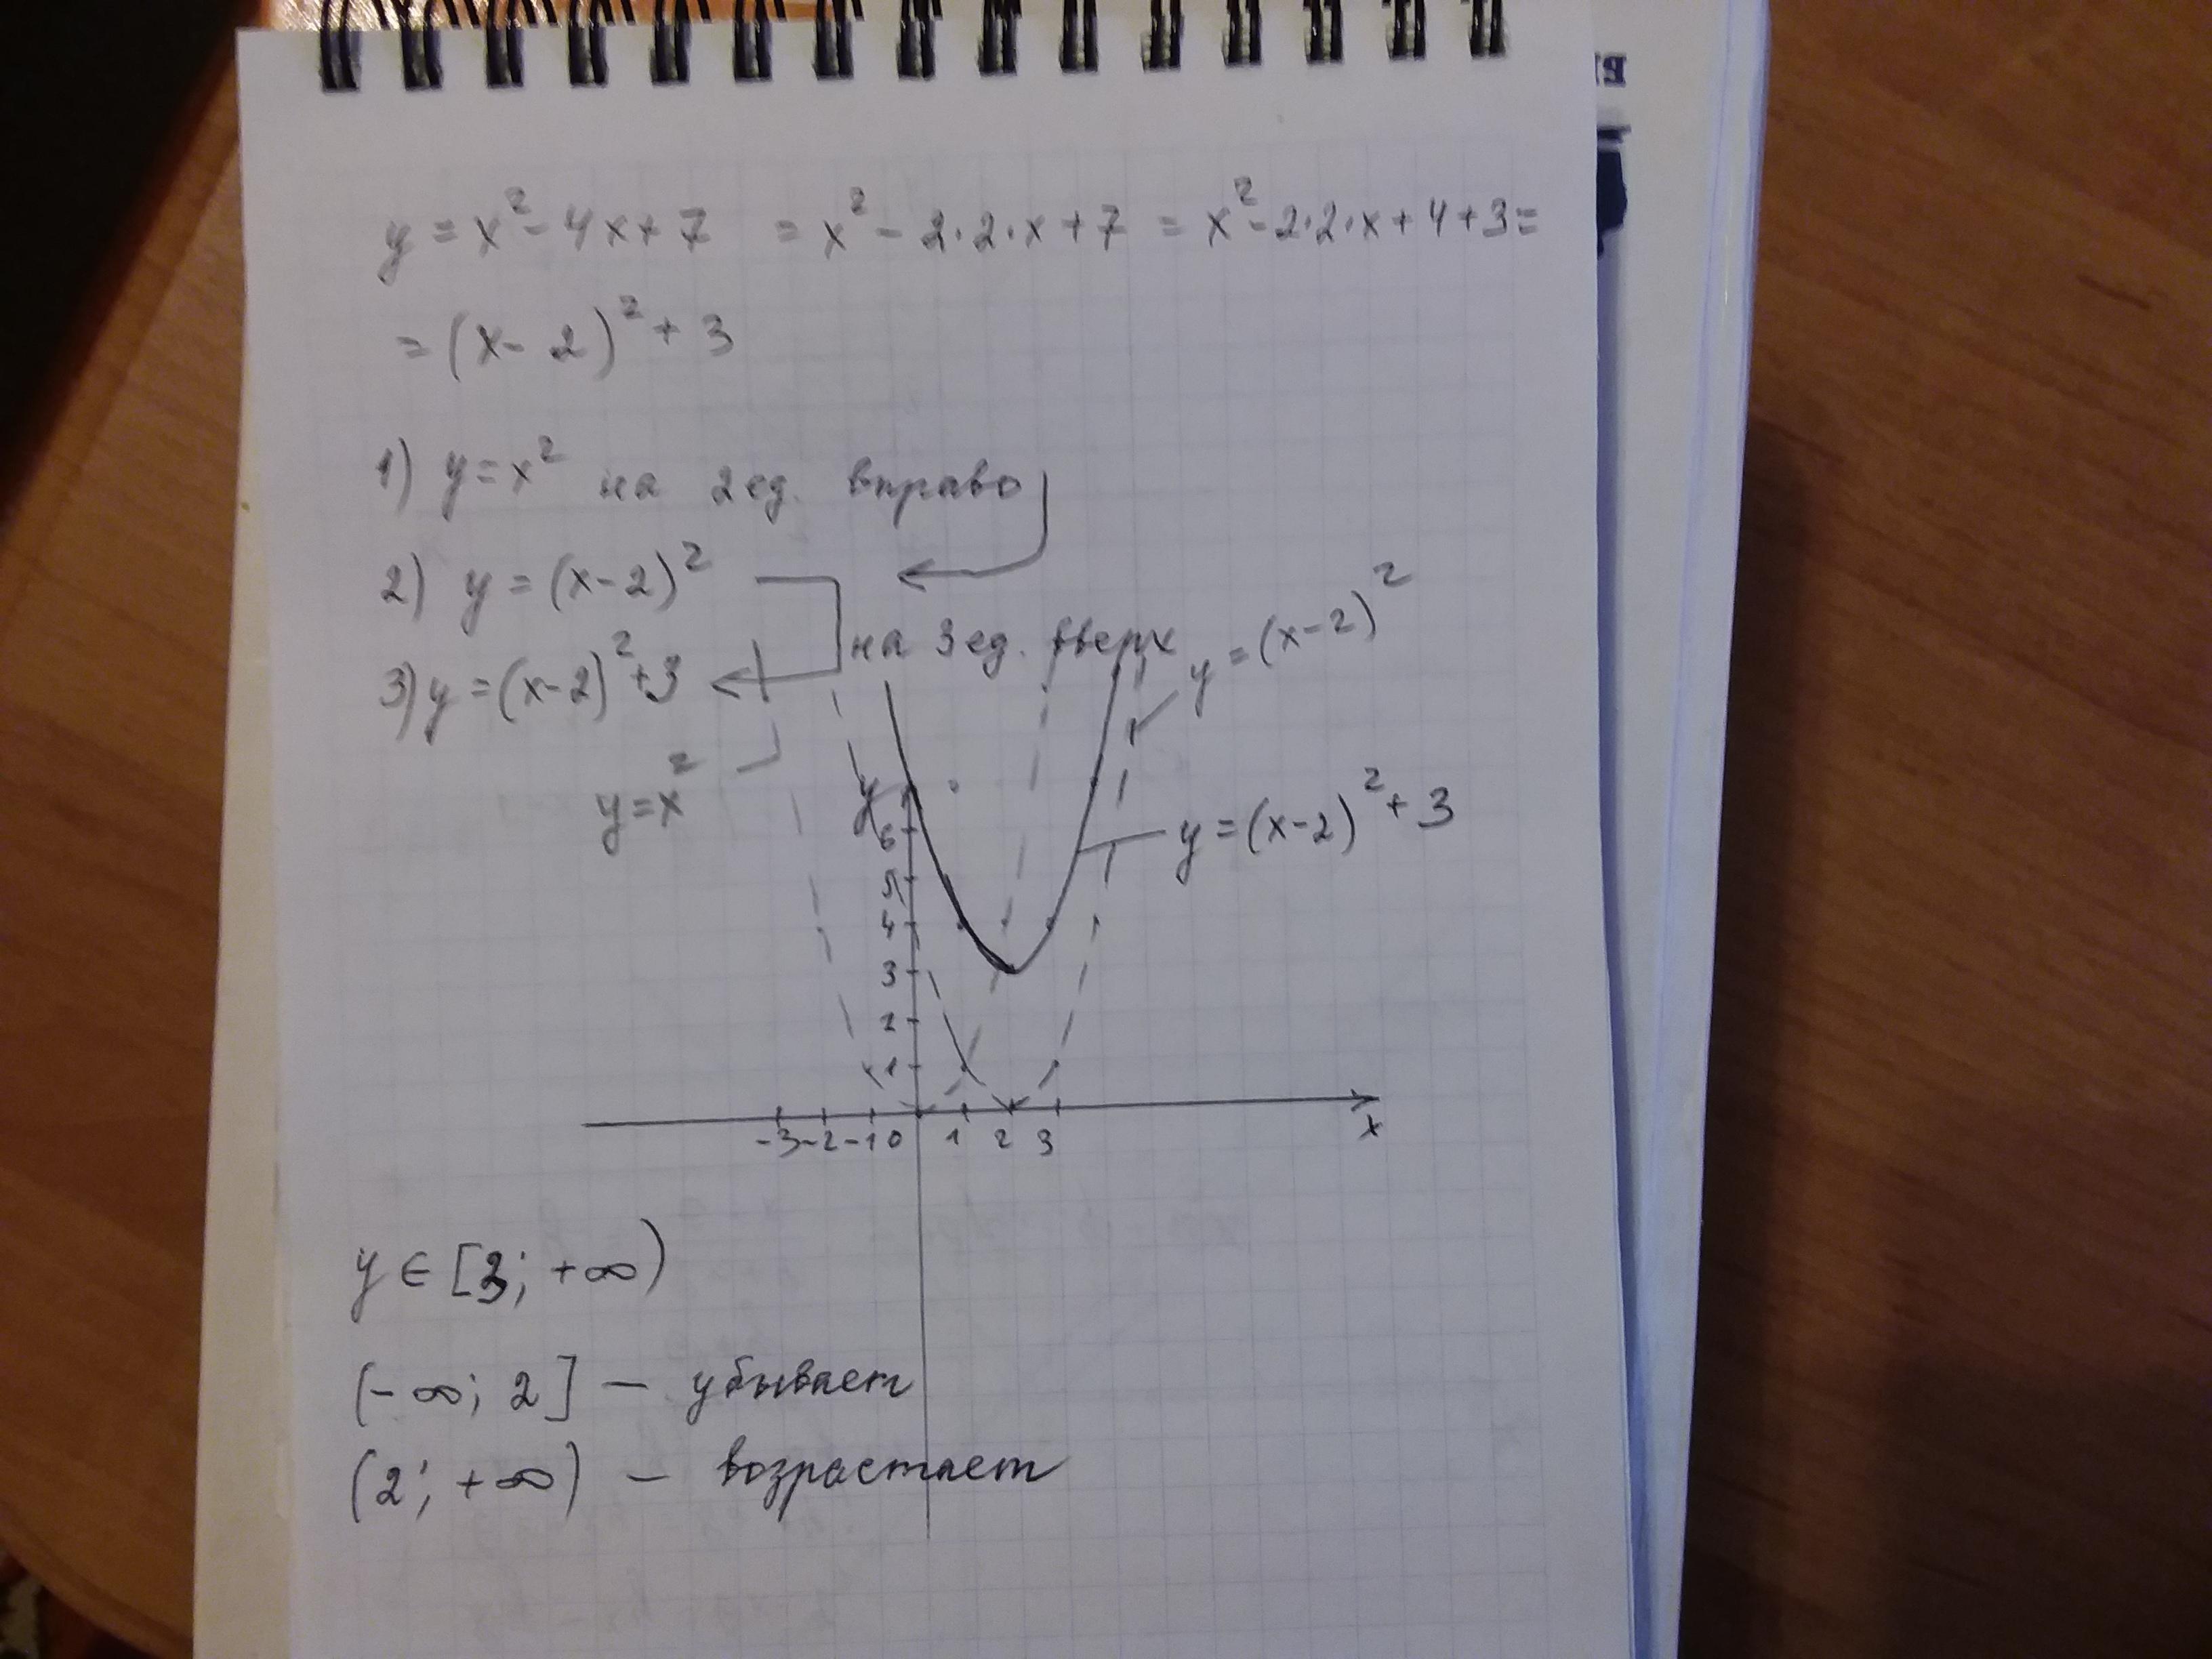 y = x² - 4x + 7 = x² - 2·2·x + 7 = x² - 2·2·x + 4 + 3 =
= (x - 2)² + 3
1) y = x² на 2 ед. вправо
2) y = (x-2)²
на 3 ед. вверх
y = (x-2)²
3) y = (x-2)² + 3
y = x²
y
y = (x-2)² + 3
6
5
4
3
2
1
-3 -2 -1 0 1 2 3
x
y ∈ [3; +∞)
(-∞; 2] — убывает
(2; +∞) — возрастает